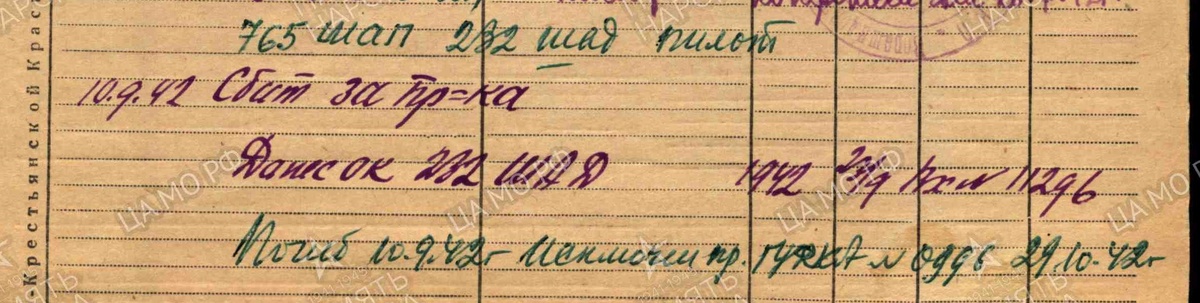 765 шап 232 шад пилот
10.9.42 Сбит за пр=ка
Данес ок 232 ШАД 1942 29/9 Вх № 11296
Погиб 10.9.42г Исключен пр. ГУФКА № 0996 29.10.42г
-Крестьянской Крас
ЦАМО РФ